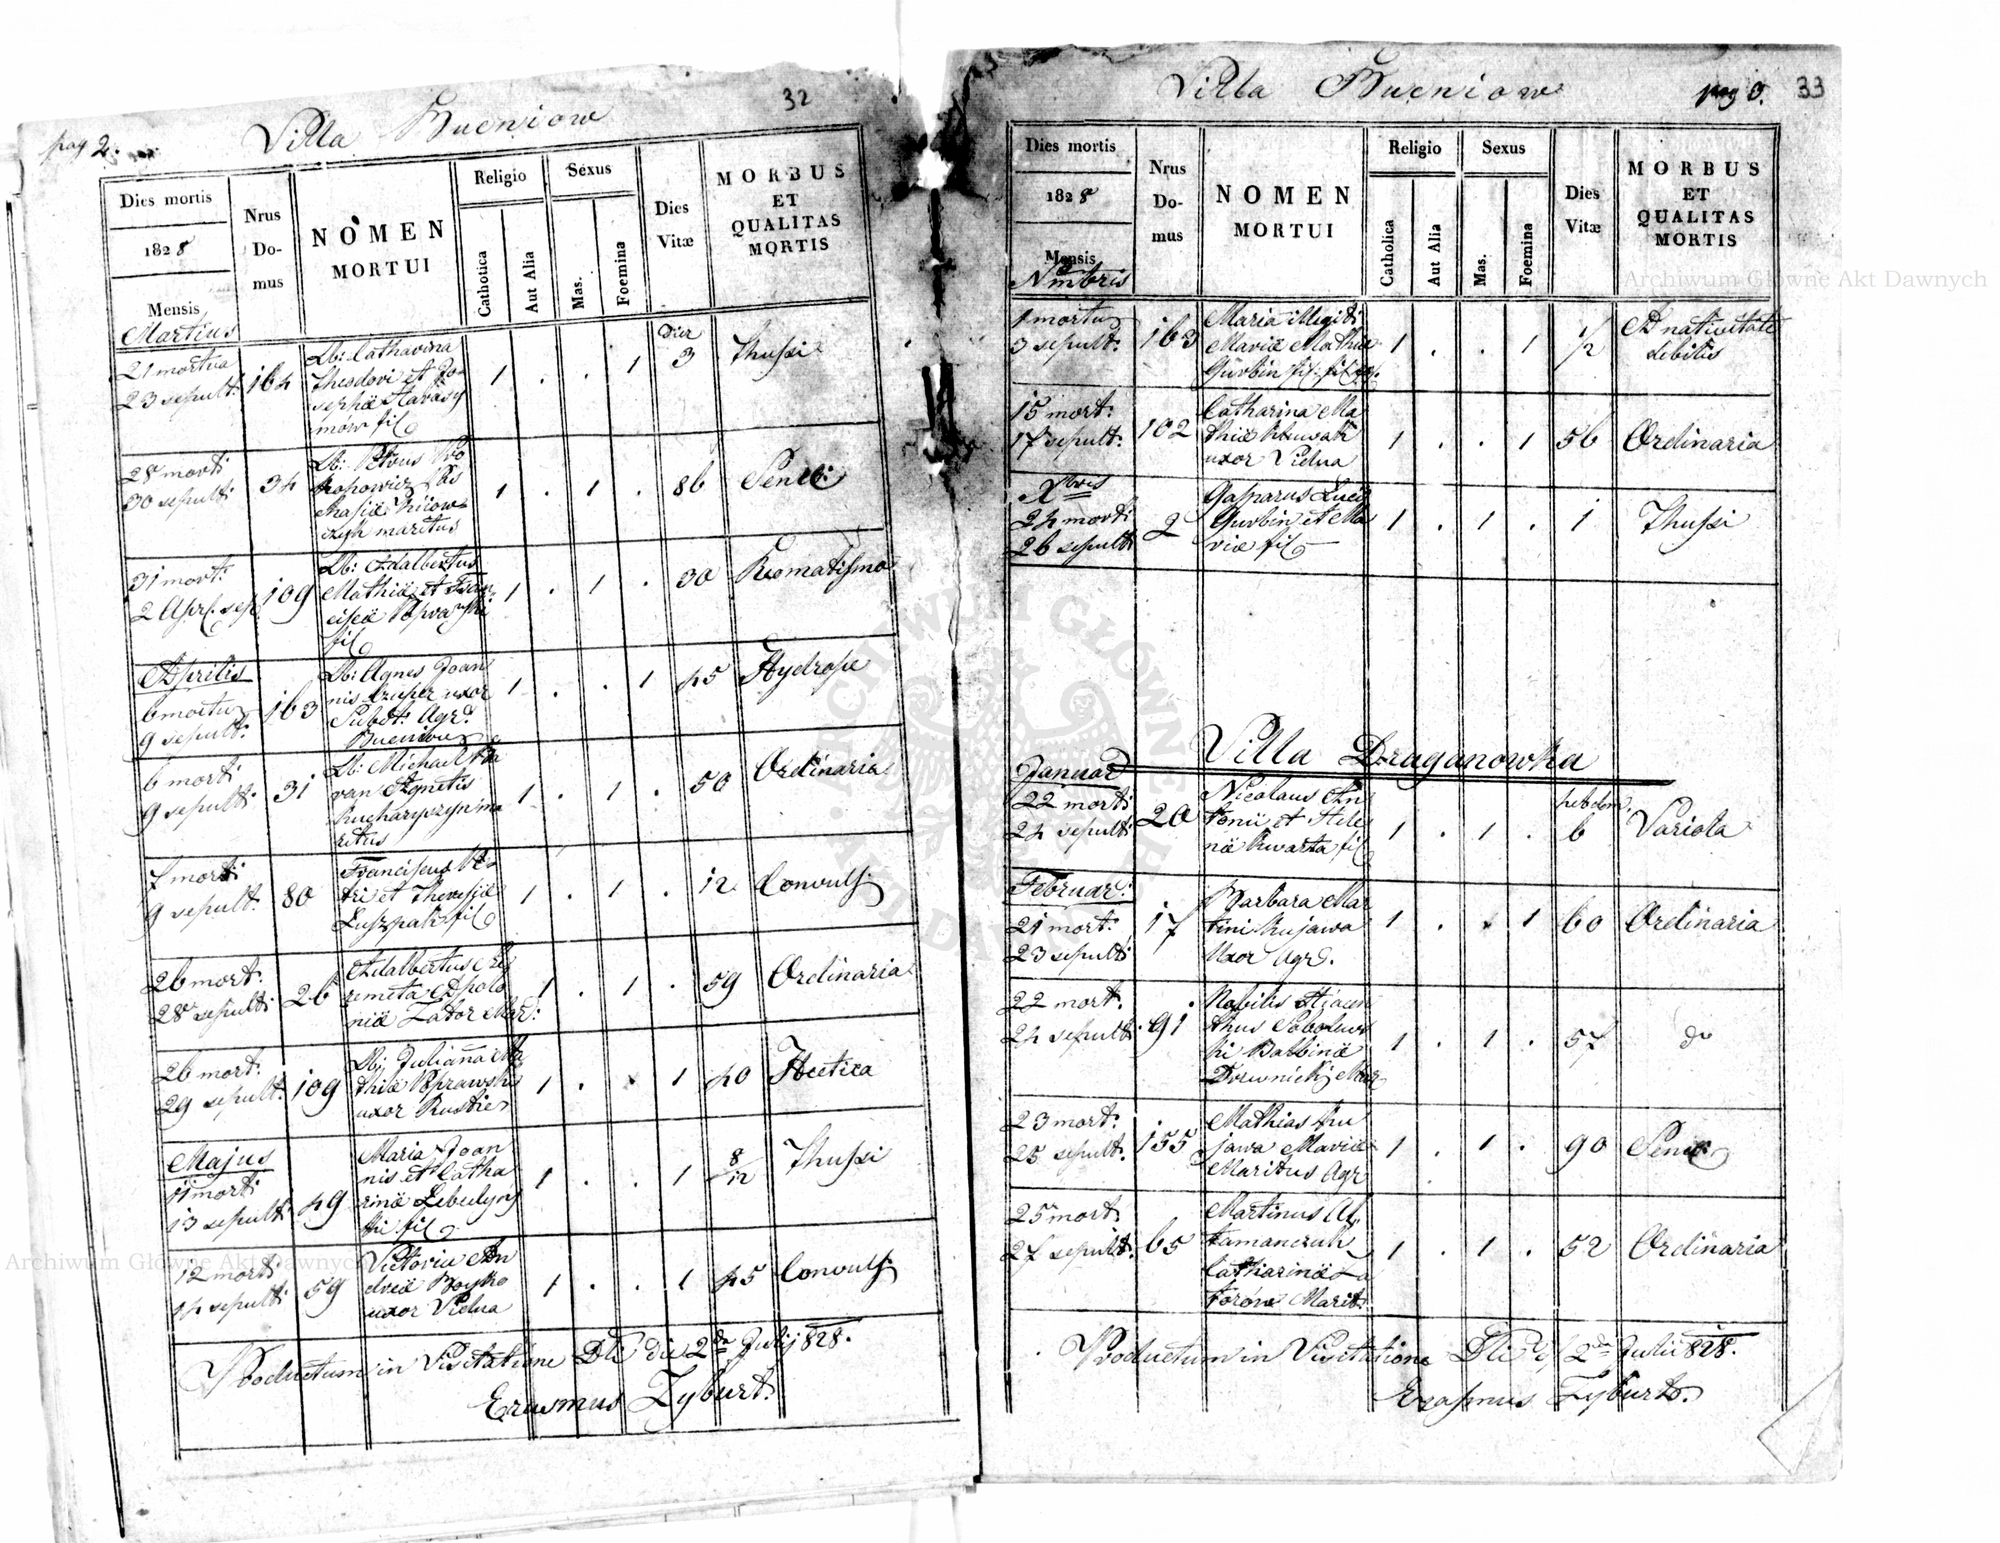 pag 2.
Villa Bucniow
32
Dies mortis
1828
Mensis
Nrus
Do-
mus
NOMEN
MORTUI
Religio
Catholica
Aut Alia
Sexus
Mas.
Foemina
Dies
Vitæ
MORBUS
ET
QUALITAS
MORTIS
Martius
21 mortua
23 sepult:
164
Lb: Catharina
Theodori et Jo
sephæ
mow fil
1 . . 1
Dier
3
Thussi
28 mort:
30 sepult:
34
Lb: Petrus Pro
kopowicz
maritus
1 . 1 .
86
Senec:
31 mort:
2 Apr. sep.
109
Lb: Adalbertus
Mathiæ et Fran
ciscæ Poprawski
fil
1 . 1 .
30
Reomatismo
Aprilis
6 mortu
9 sepult:
163
Lb: Agnes Joan
nis uxor
Subdt: Agr:
Bucniow
1 . . 1
45
Hydrope
6 mort:
9 sepult:
31
Lb: Michael
Agnetis
ma
ritus
1 . 1 .
50
Ordinaria
7 mort:
9 sepult:
80
Franciscus Pe
tri et Theresiæ
fil
1 . 1 .
12
Convuls:
26 mort:
28 sepult:
26
Adalbertus
Apolo
niæ Zator Mar:
1 . 1 .
59
Ordinaria
26 mort:
29 sepult:
109
Lb: Julianna Ma
thiæ Poprawski
uxor Rustic
1 . . 1
40
Hectica
Majus
11 mort:
13 sepult:
49
Maria Joan
nis et Catha
rinæ
ki fil
1 . . 1
8/12
Thussi
12 mort:
14 sepult:
59
Victoria An
dreæ Boyko
uxor Vidua
1 . . 1
45
Convuls:
Productum in Visitatione Dli die 2da Julij 828.
Erasmus Zyburt.
Villa Bucniow
33
Dies mortis
1828
Mensis
Nrus
Do-
mus
NOMEN
MORTUI
Religio
Catholica
Aut Alia
Sexus
Mas.
Foemina
Dies
Vitæ
MORBUS
ET
QUALITAS
MORTIS
Nmbris
1 mortu
3 sepult:
163
Maria illegit:
Mariæ Mathiæ
Gurbin fil.
1 . . 1
1/2
A nativitate
debilis
15 mort:
17 sepult:
102
Catharina Ma
thiæ
uxor Vidua
1 . . 1
56
Ordinaria
Xbris
24 mort:
26 sepult:
2
Gasparus Lucæ
Gurbin et Ma
riæ fil
1 . 1 .
1
Thussi
Villa Draganowka
Januar
22 mort:
24 sepult:
20
Nicolaus An
tonii et Hele
næ Kwarta fil
1 . 1 .
hebdom.
6
Variola
Februar:
21 mort:
23 sepult:
17
Barbara Mar
tini Kujawa
Uxor Agr.
1 . . 1
60
Ordinaria
22 mort:
24 sepult:
91
Nobilis Hiacin
thus Sobolews
ki Balbinæ
Drewnicki Mar
1 . 1 .
57
do
23 mort:
25 sepult:
155
Mathias Ku
jawa Mariæ
Maritus Agr
1 . 1 .
90
Senec
25 mort:
27 sepult:
65
Martinus
Catharinæ
Marit:
1 . 1 .
52
Ordinaria
Productum in Visitatione Dli 2da Julii 828.
Erasmus Zyburt.
Archiwum Główne Akt Dawnych
Archiwum Główne Akt Dawnych
ARCHIWUM GŁÓWNE AKT DAWNYCH